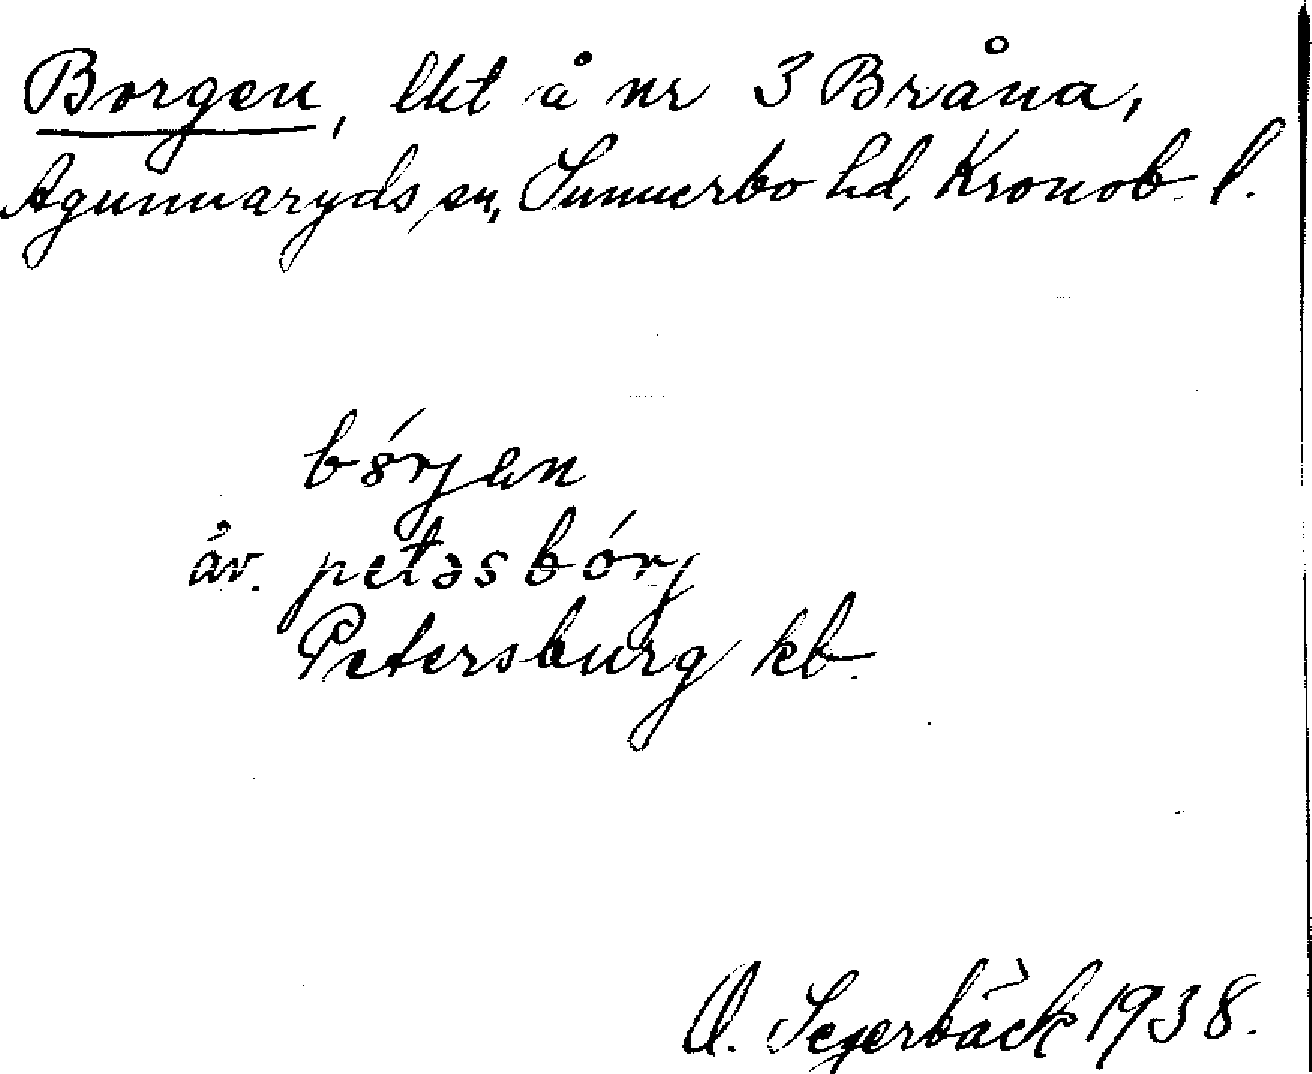 Borgen, lht å nr 3 Bråna,
Agunnaryds sn, Sunnerbo hd, Kronob. l.
bórjen
äv. petəsbórj
Petersburg kb.
O. Segerbäck 1938.